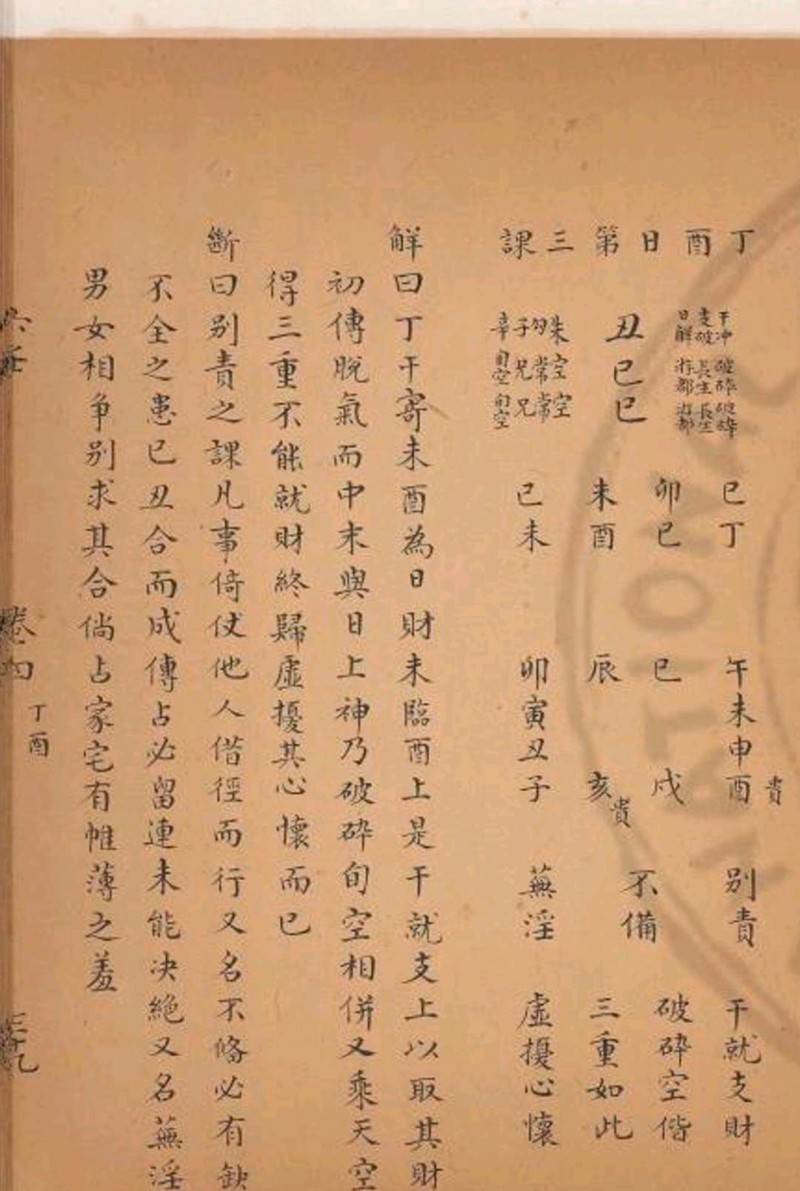 丁酉日第三課
干冲 破碎 破碎
支破 長生 長生
日解 游都 游都
丑巳巳
朱空空
勾常常
子兄兄
辛旬空旬空
巳丁
卯巳
未酉
巳未
午未申酉貴
巳戌
辰亥貴
卯寅丑子
別責
不備
蕪淫
干就支財
破碎空偕
三重如此
虛擾心懷
解曰丁干寄未酉為日財未臨酉上是干就支上以取其財
初傳脫氣而中末與日上神乃破碎旬空相併又乘天空
得三重不能就財終歸虛擾其心懷而已
斷曰別責之課凡事倚仗他人借徑而行又名不脩必有缺
不全之患巳丑合而成傳占必留連未能决絕又名蕪淫
男女相争別求其合倘占家宅有帷薄之羞
丁酉
NATIONAL